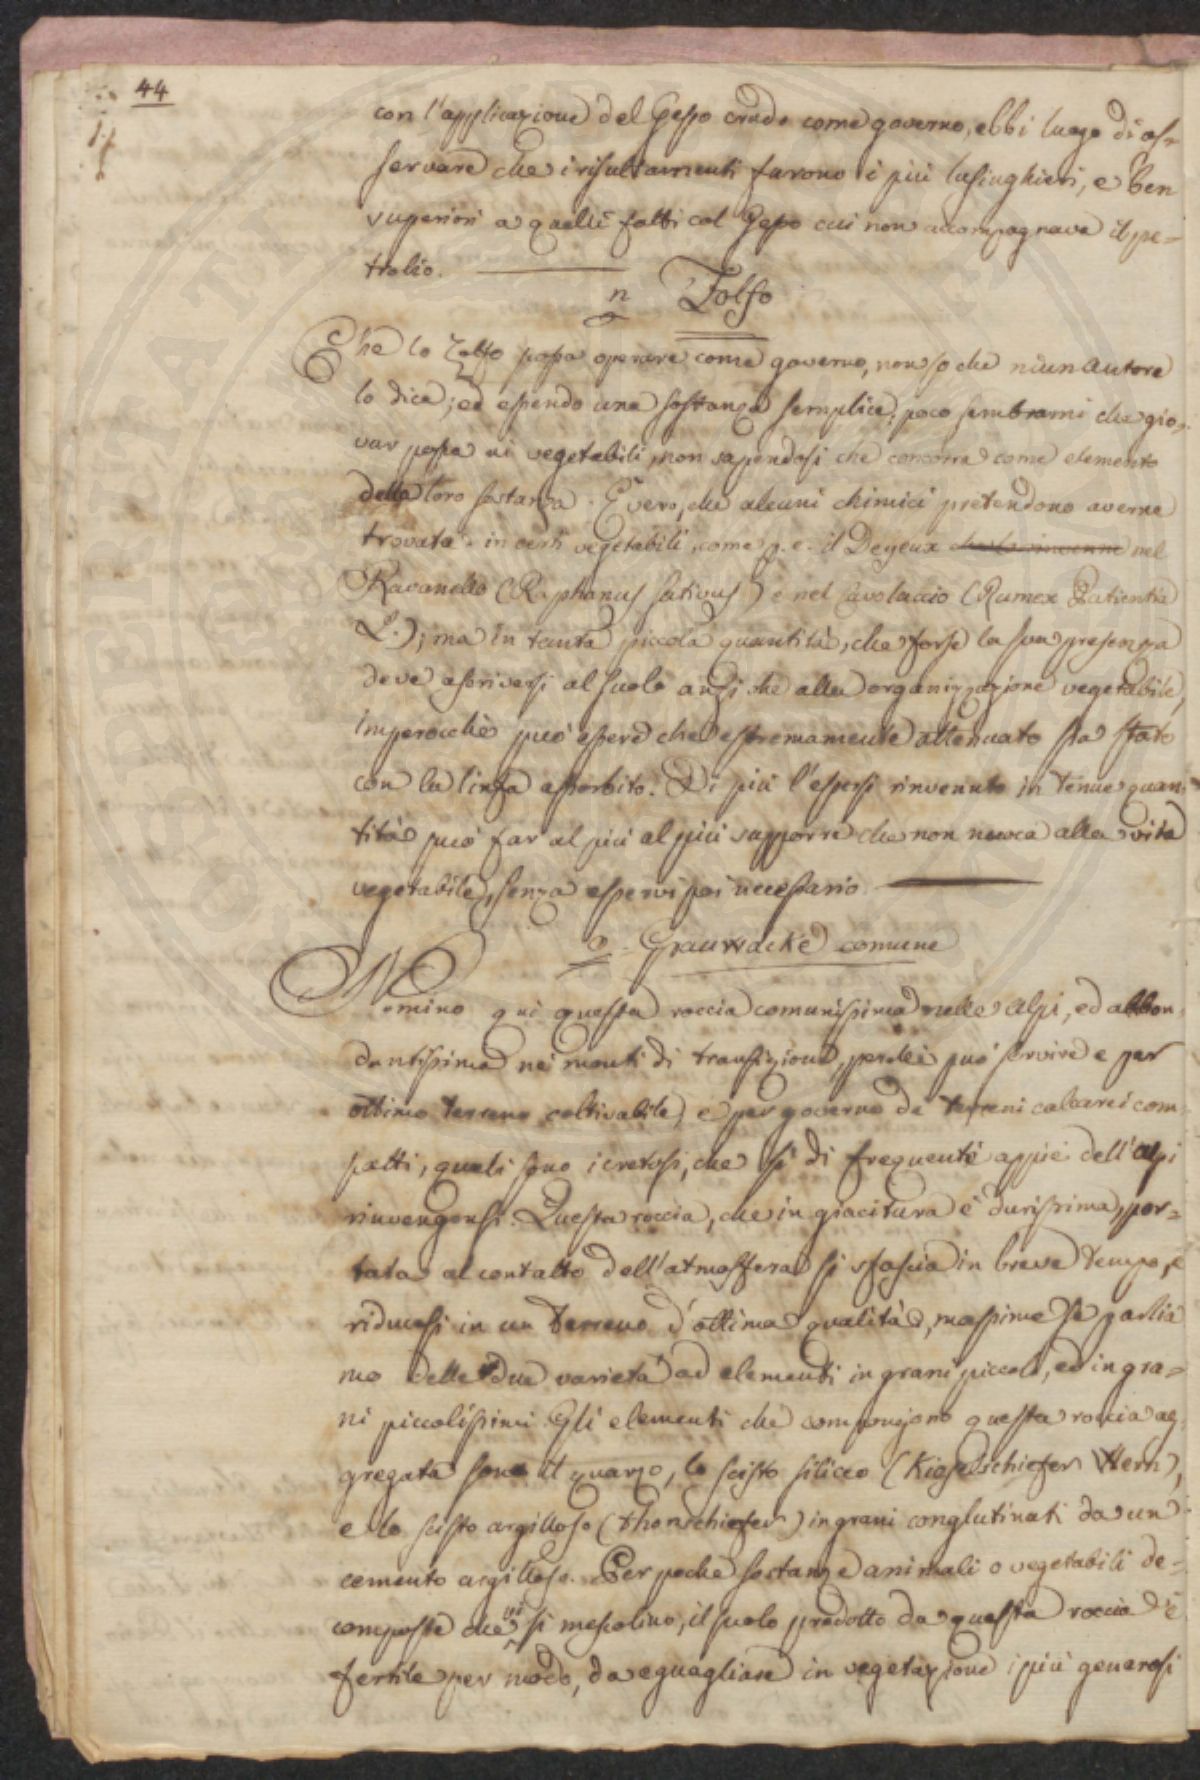 44
con l'applicazione del Gesso crudo come governo, ebbi luogo di os=
servare che i risultamenti furono i più lusinghieri, e ben
superiori a quelli fatti col Gesso cui non accompagnava il pe=
trolio.
n Zolfo
Che lo Zolfo possa operare come governo, non so che niun autore
lo dica; ed essendo una sostanza semplice, poco sembrami che gio=
var possa ai vegetabili, non sapendosi che concorra come elemento
della loro sostanza. È vero, che alcuni chimici pretendono averne
trovata in certi vegetabili, come p. e. il Deyeux che lo rinvenne nel
Ravanello (Raphanus sativus) e nel Cavolaccio (Rumex Patientia
L.); ma in tanta piccola quantità, che forse la sua presenza
deve ascriversi al suolo anzi che alla organizzazione vegetabile,
imperocchè può essere che estremamente attenuato sia stato
con la linfa assorbito. Di più l'essersi rinvenuto in tenue quan=
tità può far al più al più supporre che non nuoca alla vita
vegetabile, senza esservi poi necessario.
o Grauwacke comune
Nomino qui questa roccia comunissima nelle Alpi, ed abbon=
dantissima nei monti di transizione, perchè può servire e per
ottimo terreno coltivabile, e per governo de' terreni calcarei com=
patti, quali sono i cretosi, che sì di frequente appiè dell'Alpi
rinvengonsi. Questa roccia, che in giacitura è durissima, por=
tata al contatto dell'atmosfera si sfascia in breve tempo, e
riducesi in un terreno d'ottima qualità, massime se parlia
mo delle due varietà ad elementi in grani piccoli, ed in gra=
ni piccolissimi. Gli elementi che compongono questa roccia ag=
gregata sono il quarzo, lo scisto siliceo (Kieselschiefer Wern),
e lo scisto argilloso (thonschiefer) in grani conglutinati da un
cemento argilloso. Per poche sostanze animali o vegetabili de=
composte che vi si mescolino, il suolo prodotto da questa roccia è
fertile per modo, da eguagliare in vegetazione i più generosi